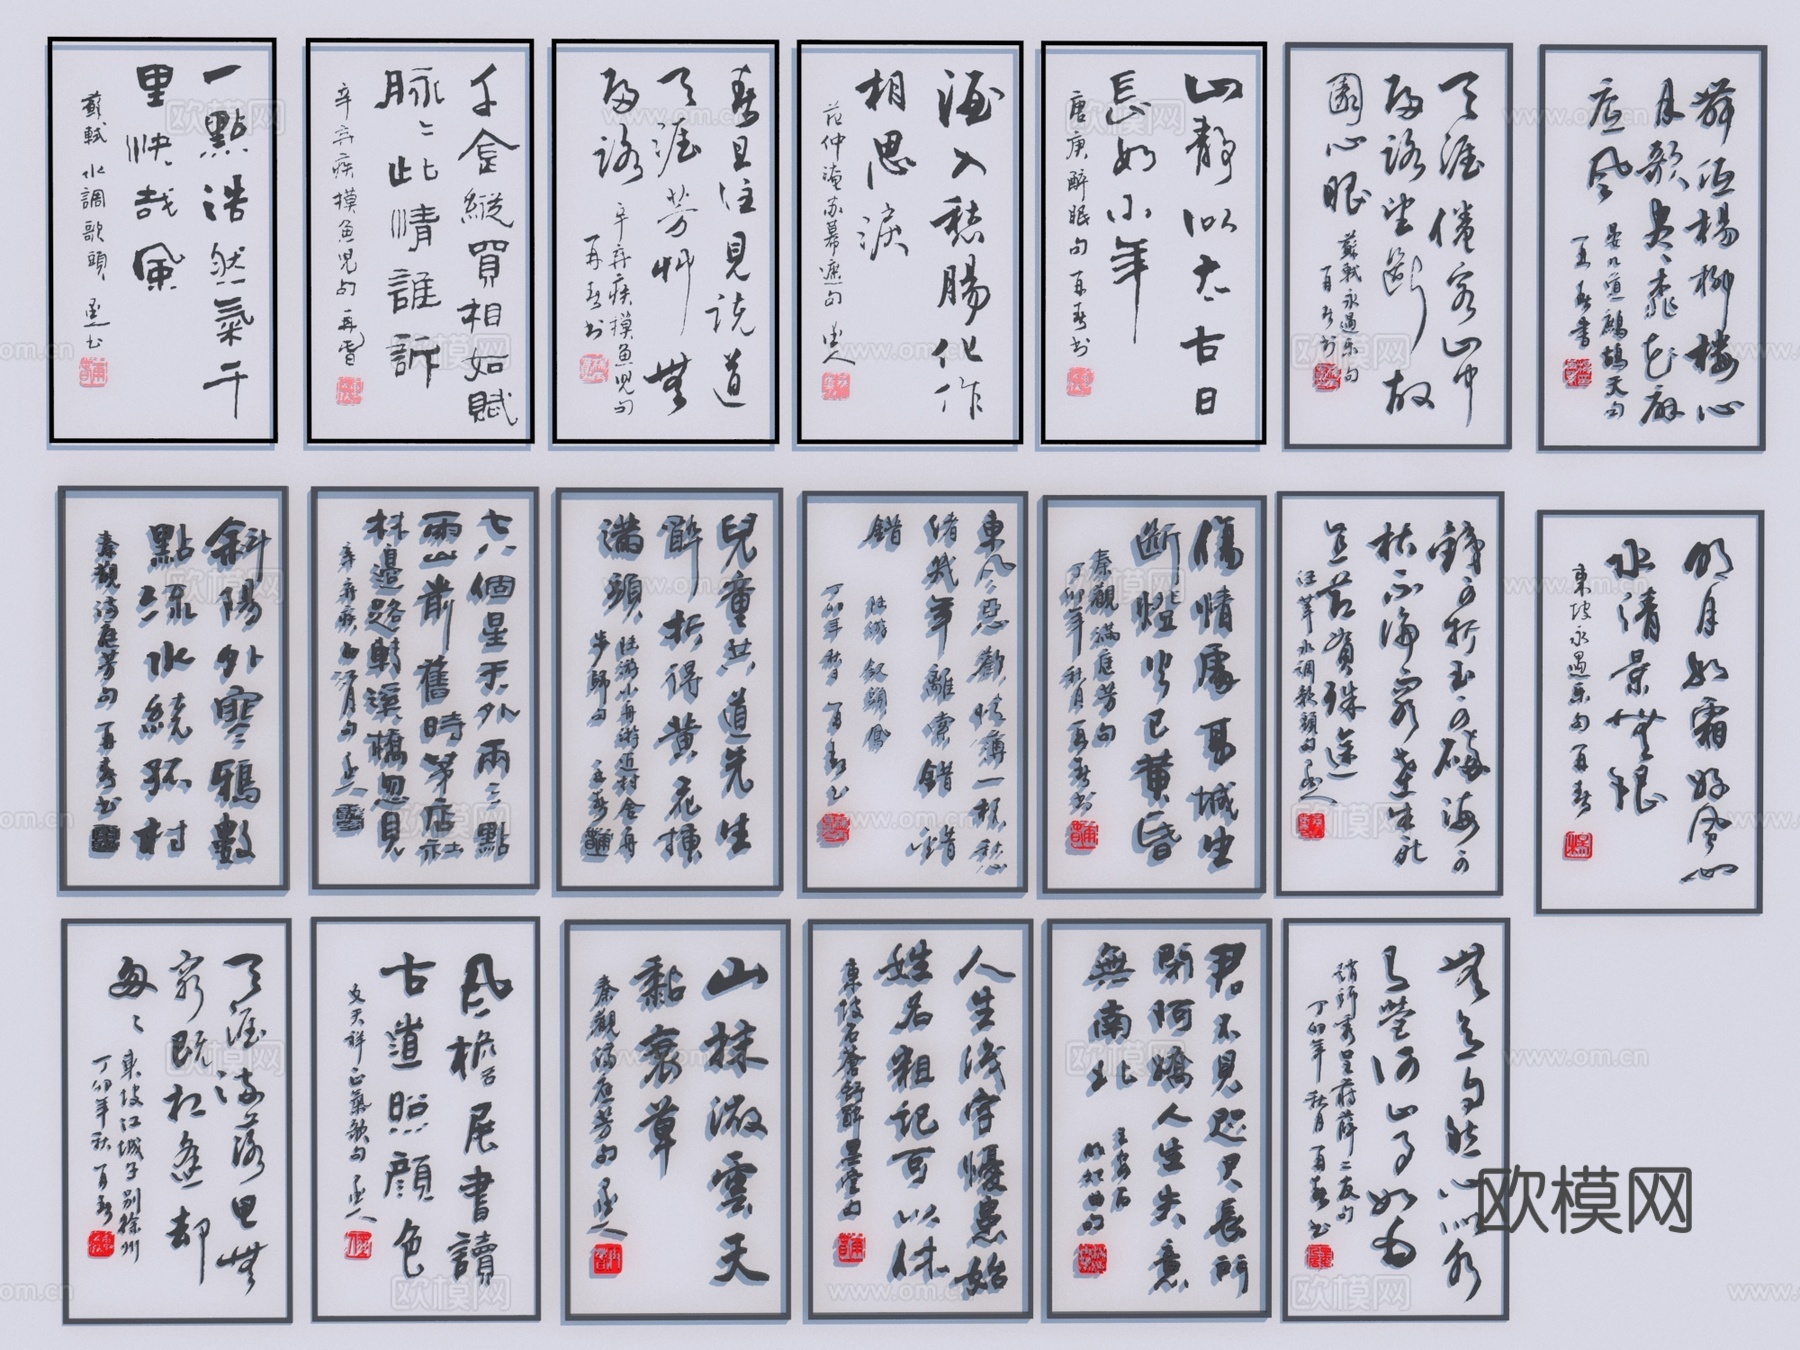 一點浩然氣千
里快哉風
蘇軾 水調歌頭
千金縱買相如賦
脉脉此情誰訴
辛弃疾摸魚児句
春且住見説道
天涯芳草無
歸路
辛弃疾摸魚児句
酒入愁腸化作
相思淚
范仲淹苏幕遮句
山静似太古日
長如小年
唐庚醉眠句
天涯倦客山中
歸路望斷故
園心眼
蘇軾永遇乐句
舞低楊柳樓心
月歌盡桃花扇
底風
晏几道鷓鴣天句
斜陽外寒鴉數
點流水繞孤村
秦觀满庭芳句
七八個星天外兩三點
雨山前舊時茅店社
林邊路轉溪橋忽見
辛弃疾西江月句
兒童共道先生
醉折得黄花插
滿頭
陸游小舟游近村舍舟
步歸句
東風惡歡情薄一杯愁
绪幾年離索錯錯
錯
陸游 釵頭鳳
丁卯年秋月
傷情處高城望
斷燈火已黄昏
秦觀滿庭芳句
丁卯年秋月
明月如霜好風如
水清景無限
東坡永遇乐句
天涯流落思無
窮既相逢却
匆匆
東坡江城子别徐州
丁卯年秋
風檐展書讀
古道照顔色
文天祥正氣歌句
山抹微雲天
黏衰草
秦觀满庭芳句
人生識字憂患始
姓名粗記可以休
東坡石蒼舒醉墨堂句
君不見咫尺長門
閉阿嬌人生失意
無南北
王安石
明妃曲句
丁卯年秋月
欧模网
www.om.cn